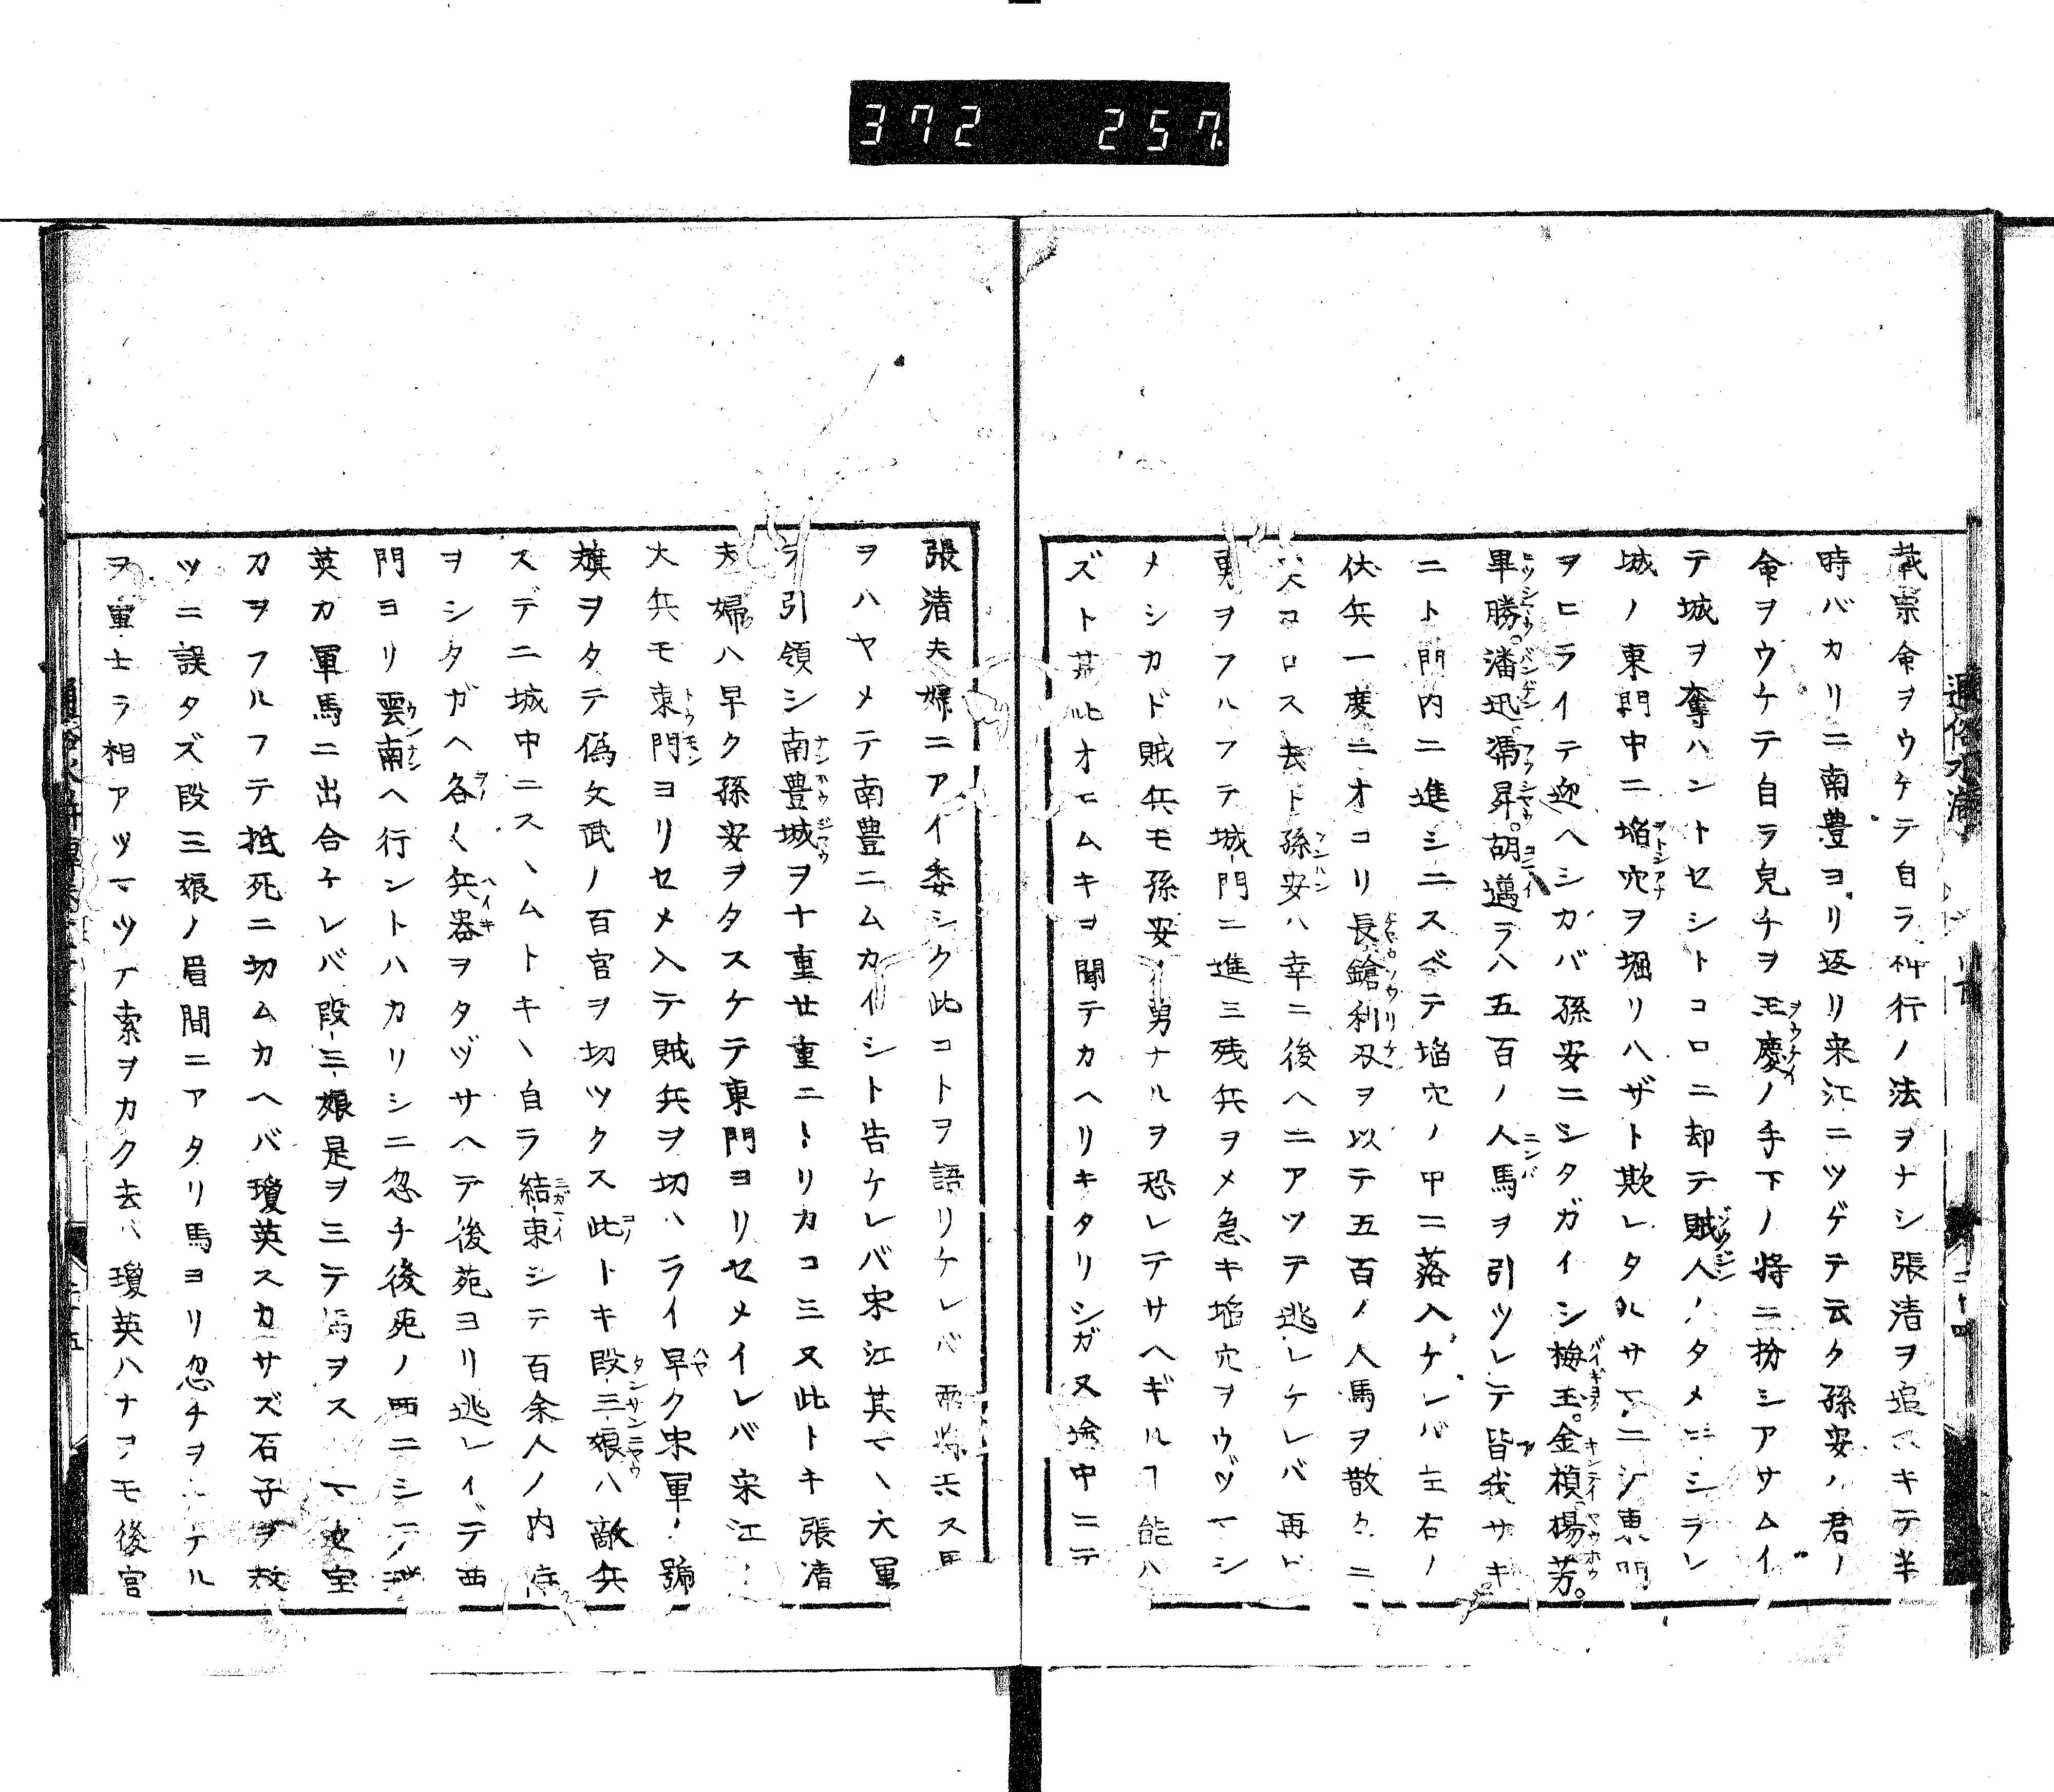 372 257
通俗水滸
戴宗命ヲウケテ自ラ神行ノ法ヲナシ張清ヲ追フキテ半
時バカリニ南豊ヨリ返リ来江ニツゲテ云ク孫安ハ君ノ
命ヲウケテ自ラ皃チヲ王慶ノ手下ノ将ニ扮シアサムイ
テ城ヲ奪ハントセシトコロニ却テ賊人ノタメニシラレ
城ノ東門中ニ埳穴ヲ堀リハザト欺レタルサマニシ東門
ヲヒライテ迎ヘシカバ孫安ニシタガイシ梅玉。金楨楊芳。
畢勝。潘迅馮昇。胡邁ラハ五百ノ人馬ヲ引ツレテ皆我サキ
ニト門内ニ進シニスベテ埳穴ノ中ニ落入ケレバ左右ノ
伏兵一度ニオコリ長鎗利刃ヲ以テ五百ノ人馬ヲ散々ニ
コロス去ト孫安ハ幸ニ後ヘニアツテ逃レケレバ再ト
勇ヲフハフテ城門ニ進ミ残兵ヲメ急キ埳穴ヲウヅマシ
メシカド賊兵モ孫安ノ勇ナルヲ恐レテサヘギルヿ能ハ
ズト其比オヒムキヲ聞テカヘリキタリシガ又途中ニテ
張清夫婦ニアイ委シク此コトヲ語リケレバ両将ス馬
ヲハヤメテ南豊ニムカイシト告ケレバ宋江其マヽ大軍
ヲ引領シ南豊城ヲ十重廿重ニトリカコミ又此トキ張清
夫婦ハ早ク孫安ヲタスケテ東門ヨリセメイレバ宋江ノ
大兵モ東門ヨリセメ入テ賊兵ヲ切ハライ早ク宋軍ノ號
旗ヲタテ偽文武ノ百官ヲ切ツクス此トキ段三娘ハ敵兵
スデニ城中ニスヽムトキヽ自ラ結束シテ百余人ノ内侍
ヲシタガヘ各〱兵器ヲタヅサヘテ後苑ヨリ逃レイデ西
門ヨリ雲南ヘ行ントハカリシニ忽チ後苑ノ西ニシテ
英カ軍馬ニ出合ケレバ段三娘是ヲミテ馬ヲス
カヲフルフテ抵死ニ切ムカヘバ瓊英スカサズ石子ヲ放
ツニ誤タズ段三娘ノ眉間ニアタリ馬ヨリ忽チヲテル
ヲ軍士ラ相アツマツテ索ヲカク去バ瓊英ハナヲモ後宮